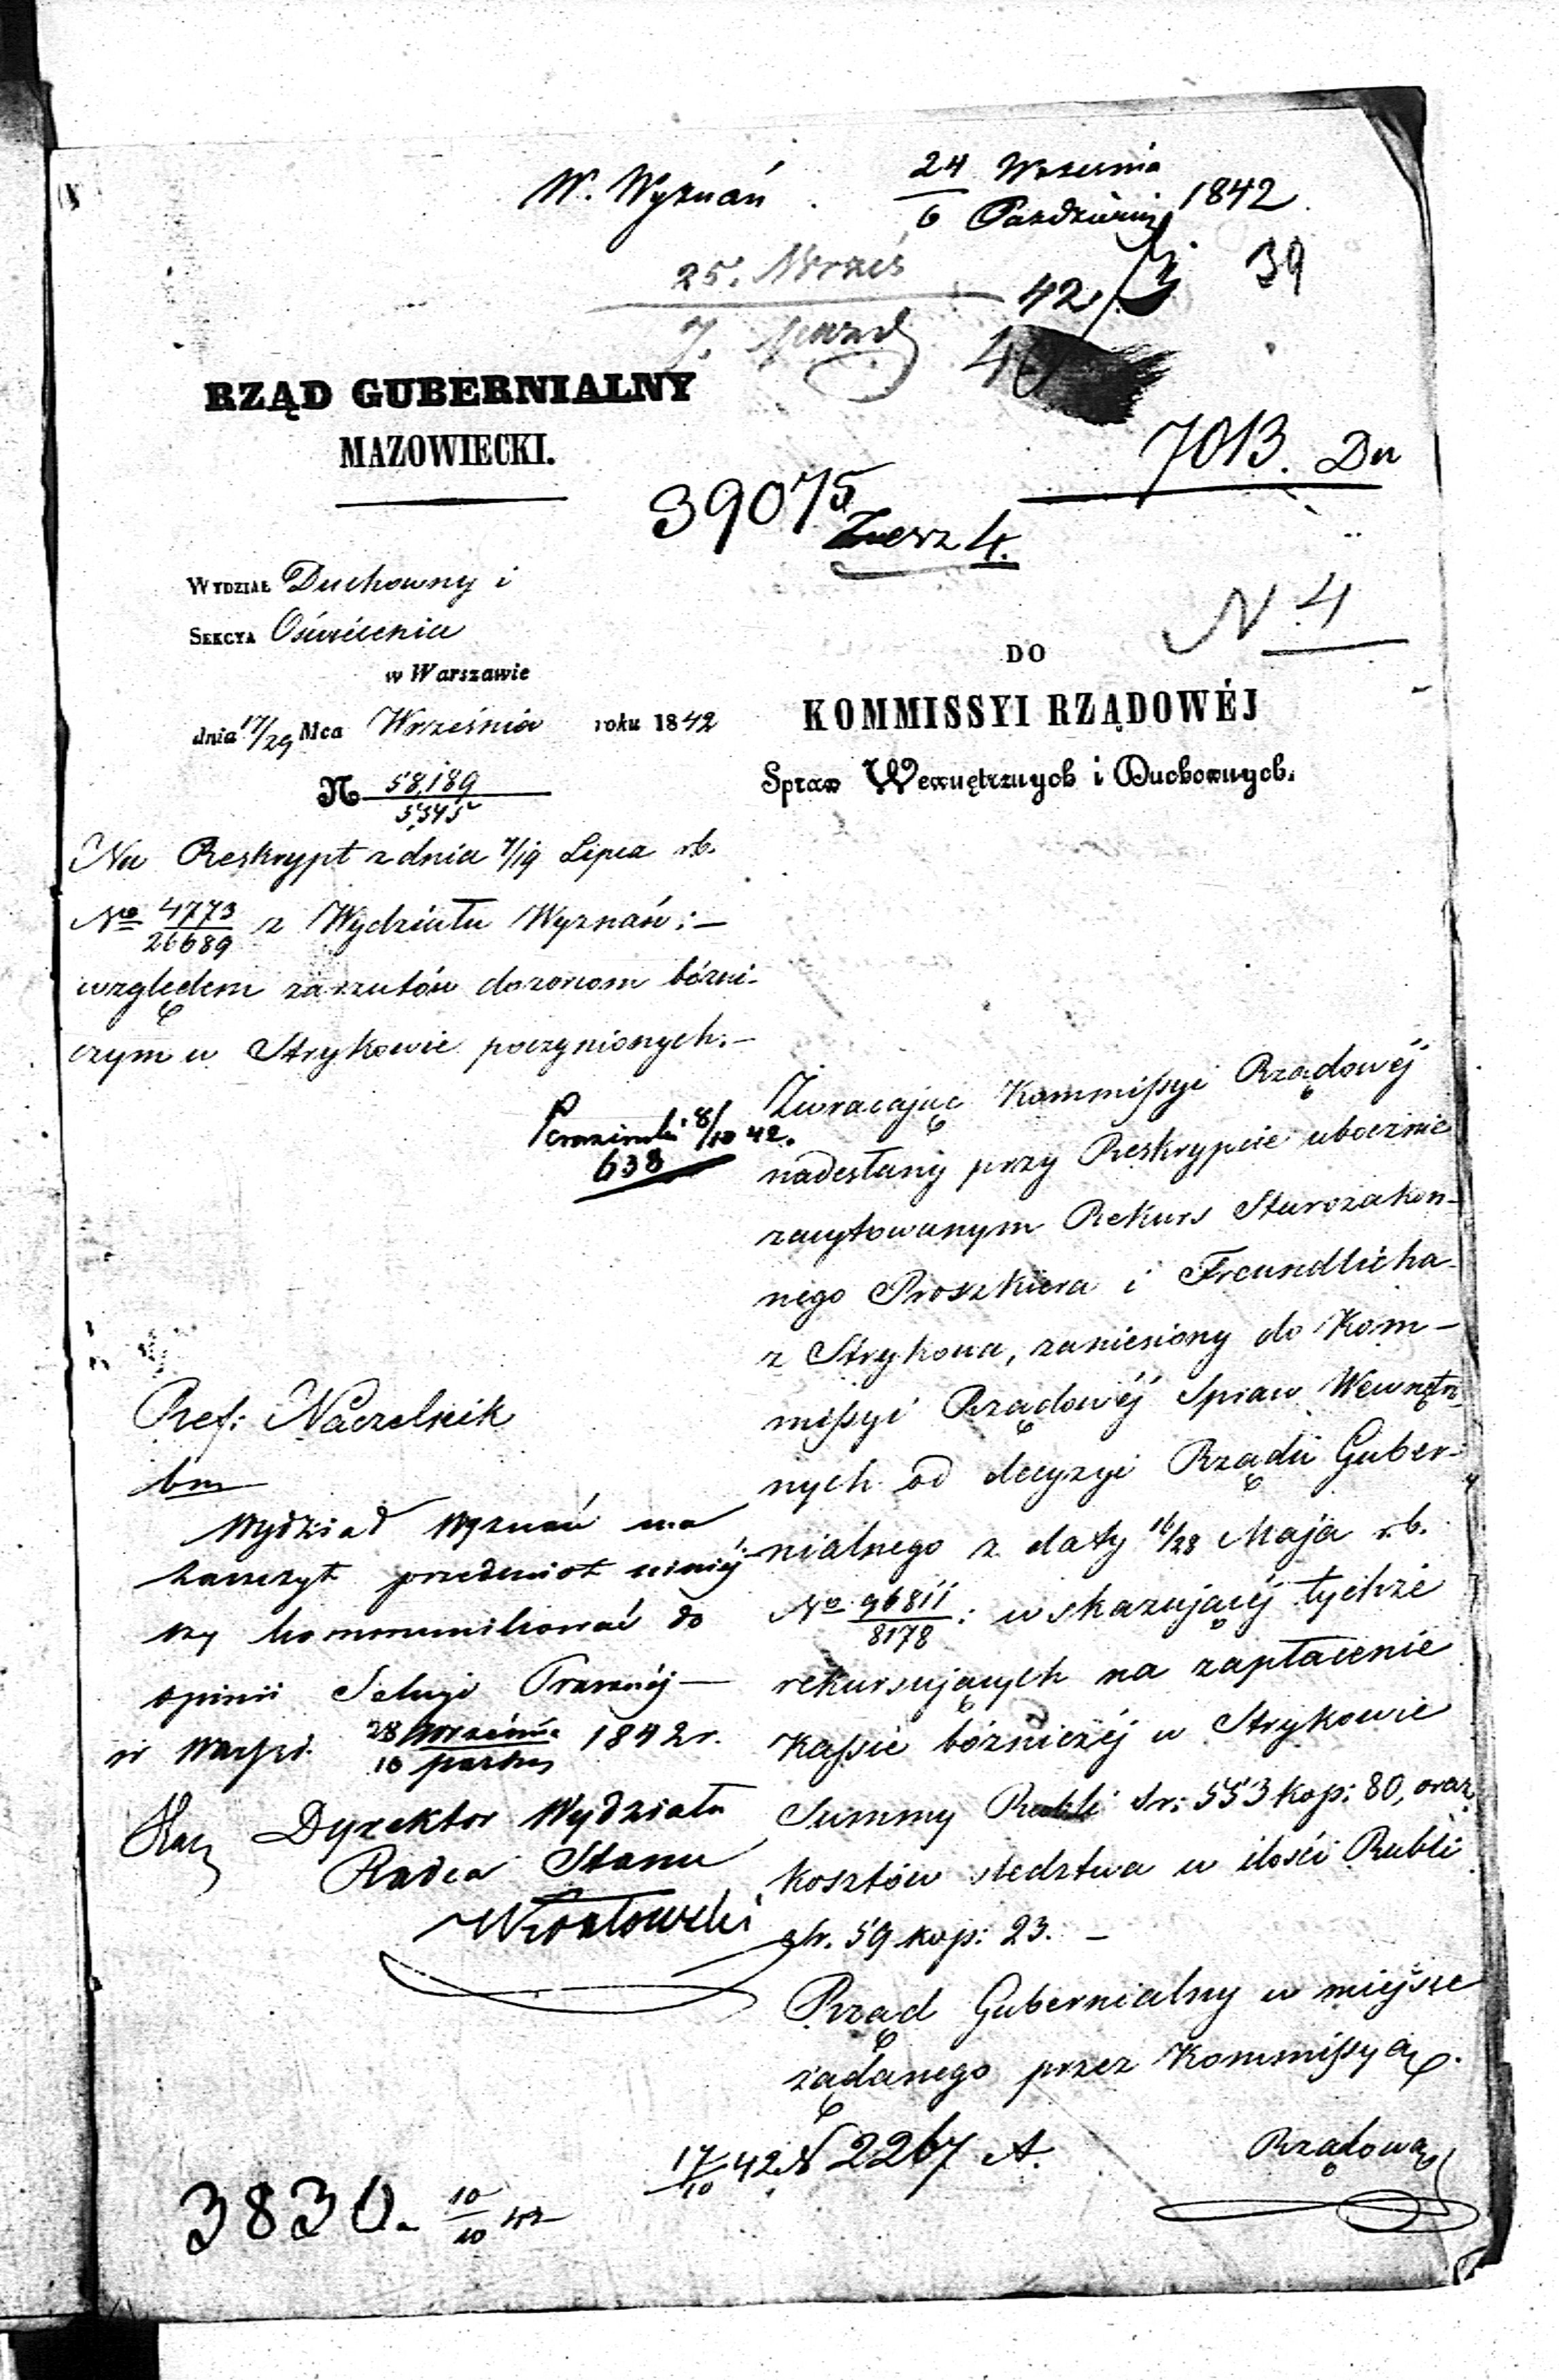 W. Wyznań
24 Września
6 Października 1842
39
25. Wrześ
7. Pazd
42
RZĄD GUBERNIALNY
MAZOWIECKI.
7013. Du
39075
4.
N 4
WYDZIAŁ Duchowny i
SEKCYA Oświécenia
w Warszawie
dnia 17/29 Mca Września roku 1842
N 58,189
5545
DO
KOMMISSYI RZĄDOWÉJ
Spraw Wewnętrznych i Duchownych.
Na Reskrypt z dnia 7/19 Lipca r.b.
No 4773/26689 z Wydziału Wyznań:—
względem zarzutów dozorom bózni-
czym w Strykowie poczynionych.—
8/10 42.
638
Zwracając Kommissyi Rządowéj
nadesłany przy Reskrypcie ubocznie
zacytowanym Rekurs Starozakon-
nego Proszkiera i Freundlicha
z Strykowa, zaniesiony do Kom-
missyi Rządowéj Spraw Wewnętrz-
nych od decyzyi Rządu Guber-
nialnego z daty 16/28 Maja r.b.
No 96811/8178: wskazującéj tychże
rekursujących na zapłacenie
Kassie bóżniczéj w Strykowie
Summy Rubli sr: 553 kop: 80, oraz
kosztów śledztwa w ilości Rubli
sr. 59 kop: 23. —
Rząd Gubernialny w miejsce
żądanego przez Kommissyą
Rządową
Ref: Naczelnik
bm
Wydział Wyznań ma
zaszczyt przedmiot niniéj-
szy kommunikować do
opinii Sekcyi Prawnéj —
w Warsz. 28 Września/10 Pazdz 1842 r.
Dyrektor Wydziału
Radca Stanu
17/10 42 N 2267 A.
3830. 10/10 42